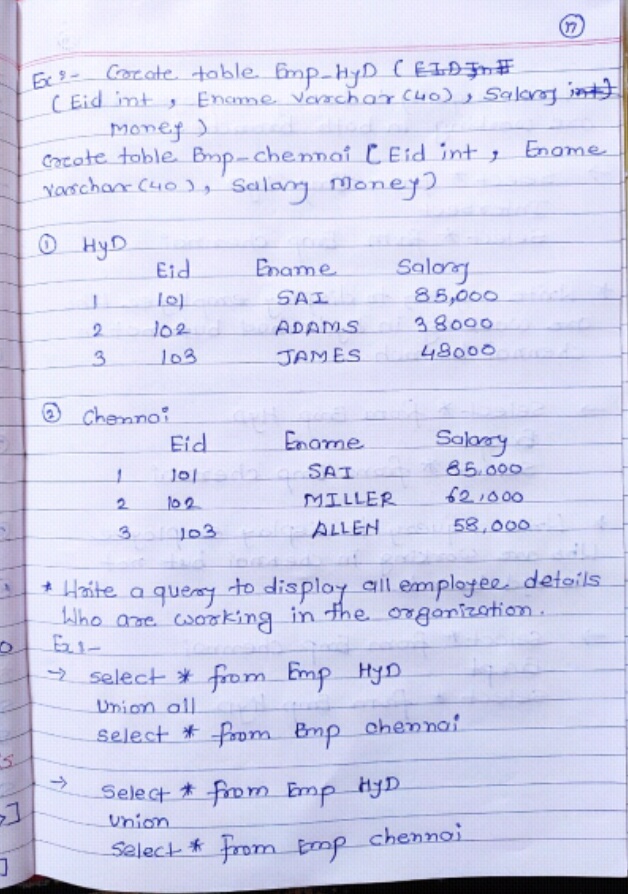 17
Ex :- Create table Emp_HyD (
( Eid int , Ename Varchar (40) , Salary
Money )
Create table Emp-chennai ( Eid int , Ename
varchar (40) , Salary Money )
① HyD
Eid Ename Salary
1 101 SAI 85,000
2 102 ADAMS 38000
3 103 JAMES 48000
② Chennai
Eid Ename Salary
1 101 SAI 85,000
2 102 MILLER 62,000
3 103 ALLEN 58,000
* Write a query to display all employee details
Who are working in the organization.
Ex :-
→ select * from Emp HyD
Union all
select * from Emp chennai
→ Select * from Emp HyD
union
Select * from Emp chennai